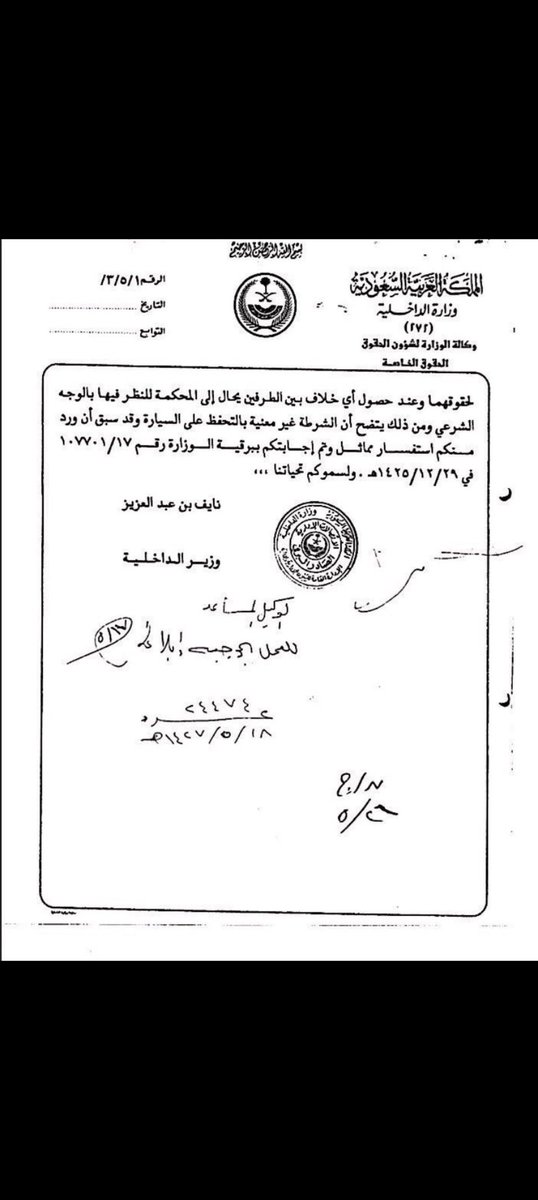 بسم الله الرحمن الرحيم
المملكة العربية السعودية
وزارة الداخلية
(٢٧٢)
وكالة الوزارة لشؤون الحقوق
الحقوق الخاصة
الرقم ٣/٥/١/
التاريخ
التوابع
لحقوقهما وعند حصول أي خلاف بين الطرفين يحال إلى المحكمة للنظر فيها بالوجه
الشرعي ومن ذلك يتضح أن الشرطة غير معنية بالتحفظ على السيارة وقد سبق أن ورد
منكم استفسار مماثل وتم إجابتكم ببرقية الوزارة رقم ١٠٧٧٠١/١٧
في ١٤٢٥/١٢/٢٩هـ . ولسموكم تحياتنا ،،،
نايف بن عبد العزيز
وزير الداخلية
الوكيل المساعد
٥/١٧
٢٤٤٧٤
١٤٢٧/٥/١٨هـ